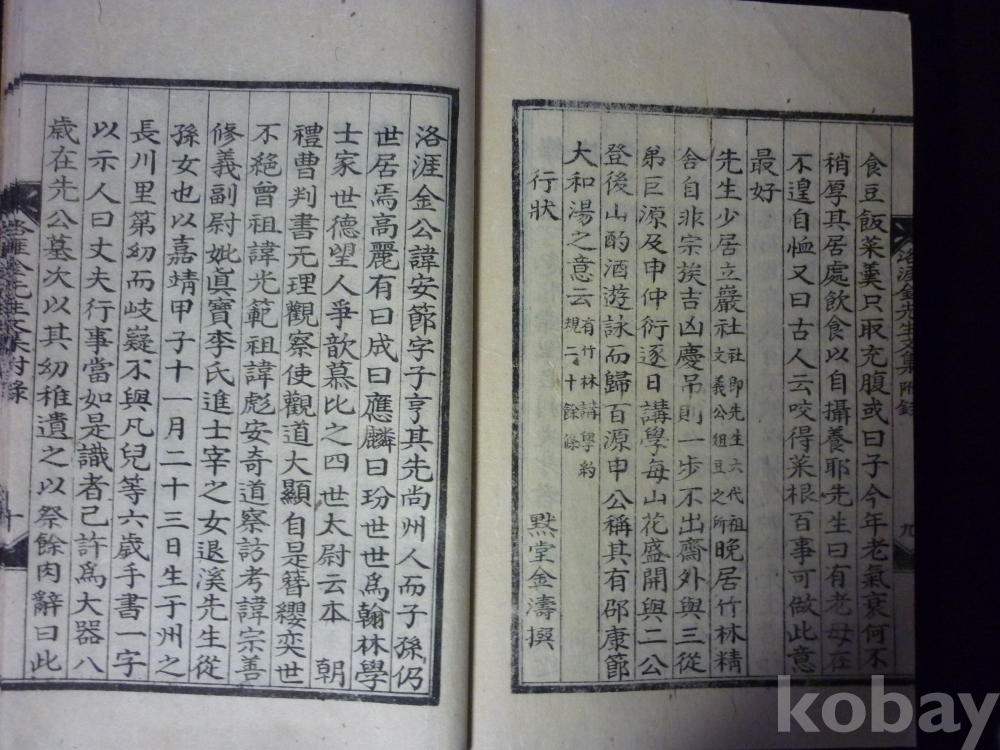 食豆飯菜羹只取充腹或曰子今年老氣衰何不
稍厚其居處飮食以自攝養耶先生曰有老母在
不遑自恤又曰古人云咬得菜根百事可做此意
最好
先生少居立巖社社卽先生六代祖文義公俎豆之所晚居竹林精
舍自非宗族吉凶慶吊則一步不出齋外與三從
弟巨源及申仲衍逐日講學每山花盛開與二公
登後山酌酒遊詠而歸百源申公稱其有邵康節
大和湯之意云有竹林講學約規二十餘條
行狀 黙堂金濤撰
洛涯金公諱安節字子亨其先尚州人而子孫仍
世居焉高麗有曰成曰應麟曰玢世世爲翰林學
士家世德望人爭歆慕比之四世太尉云本 朝
禮曹判書元理觀察使觀道大顯自是簪纓奕世
不絶曾祖諱光範祖諱彪安奇道察訪考諱宗善
修義副尉妣眞寶李氏進士宰之女退溪先生從
孫女也以嘉靖甲子十一月二十三日生于州之
長川里第幼而岐嶷不與凡兒等六歲手書一字
以示人曰丈夫行事當如是識者已許爲大器八
歲在先公墓次以其幼稚遺之以祭餘肉辭曰此
洛涯金先生文集附錄 九
洛涯金先生文集附錄 十
kobay